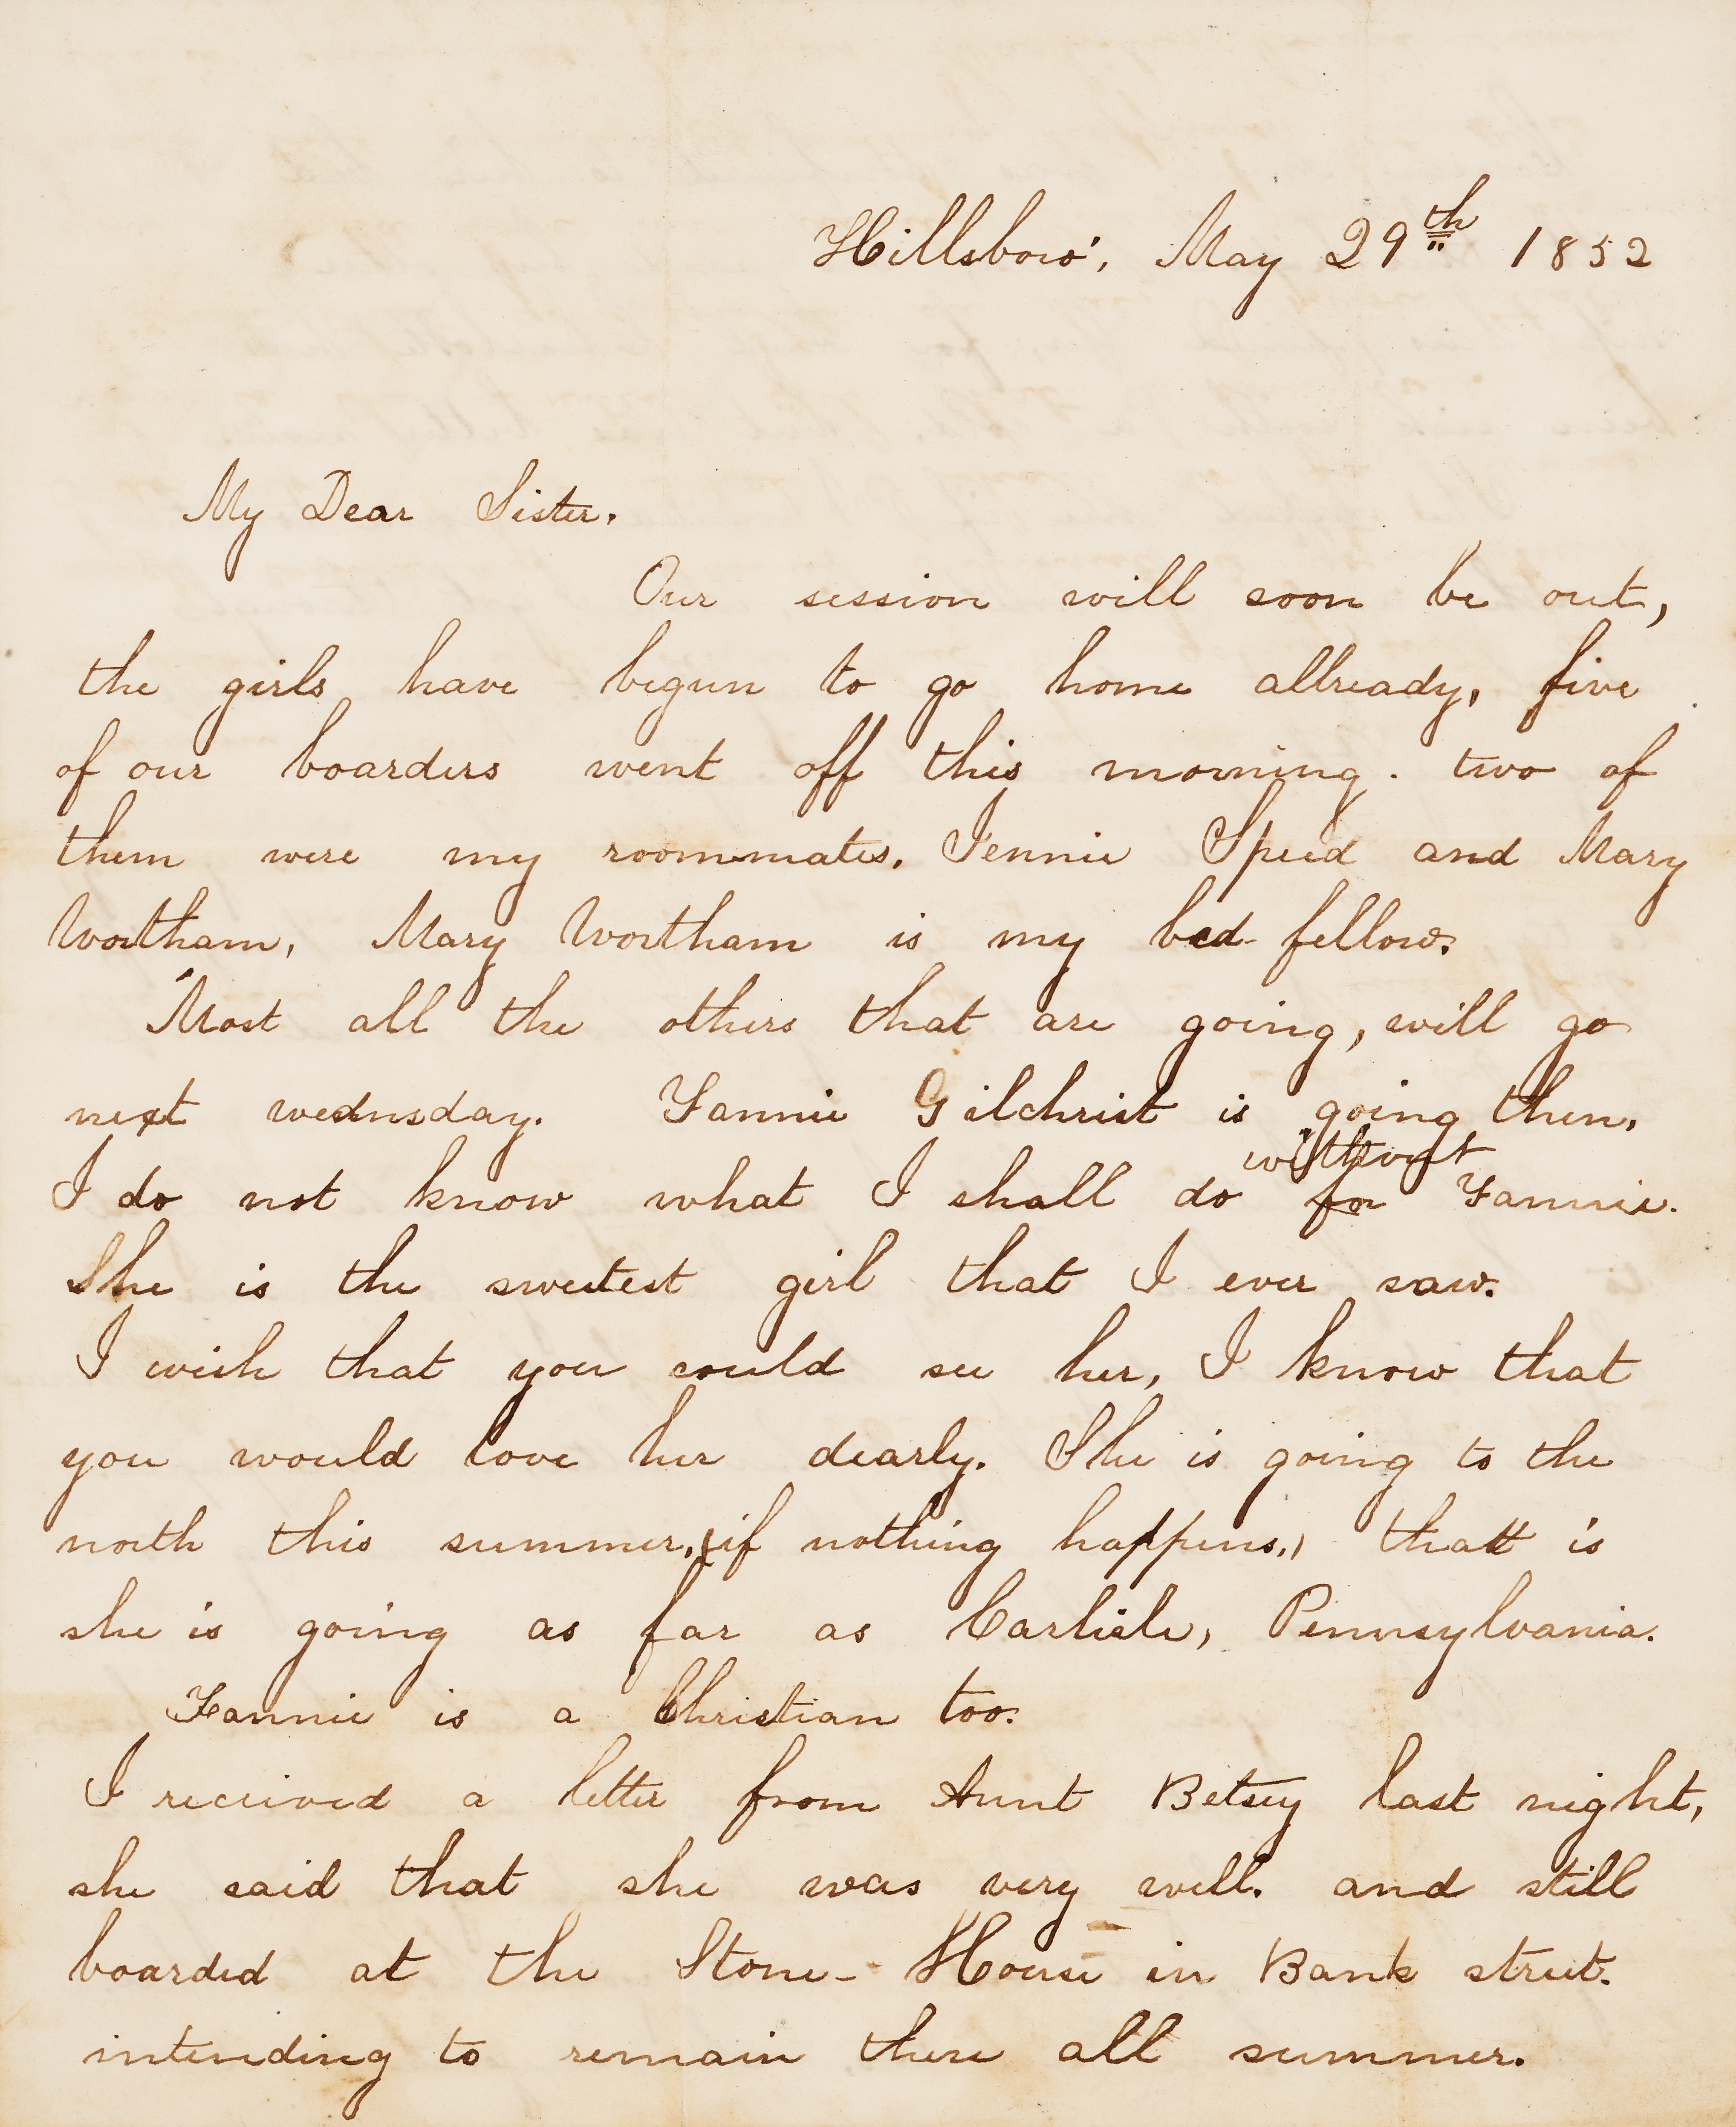 Hillsboro', May 29th 1852
My Dear Sister.
Our session will soon be out,
the girls have begun to go home allready, five
of our boarders went off this morning. two of
them were my roommates. Jennie Speed and Mary
Wortham, Mary Wortham is my bed-fellow.
Most all the others that are going, will go
next wednsday. Fannie Gilchrist is going then,
without
I do not know what I shall do for Fannie.
She is the sweetest girl that I ever saw.
I wish that you could see her, I know that
you would love her dearly. She is going to the
north this summer, (if nothing happens,) that is
she is going as far as Carlisle, Pennsylvania.
Fannie is a Christian too.
I received a letter from Aunt Betsey last night,
she said that she was very well. and still
boarded at the Stone-House in Bank street.
intending to remain there all summer.